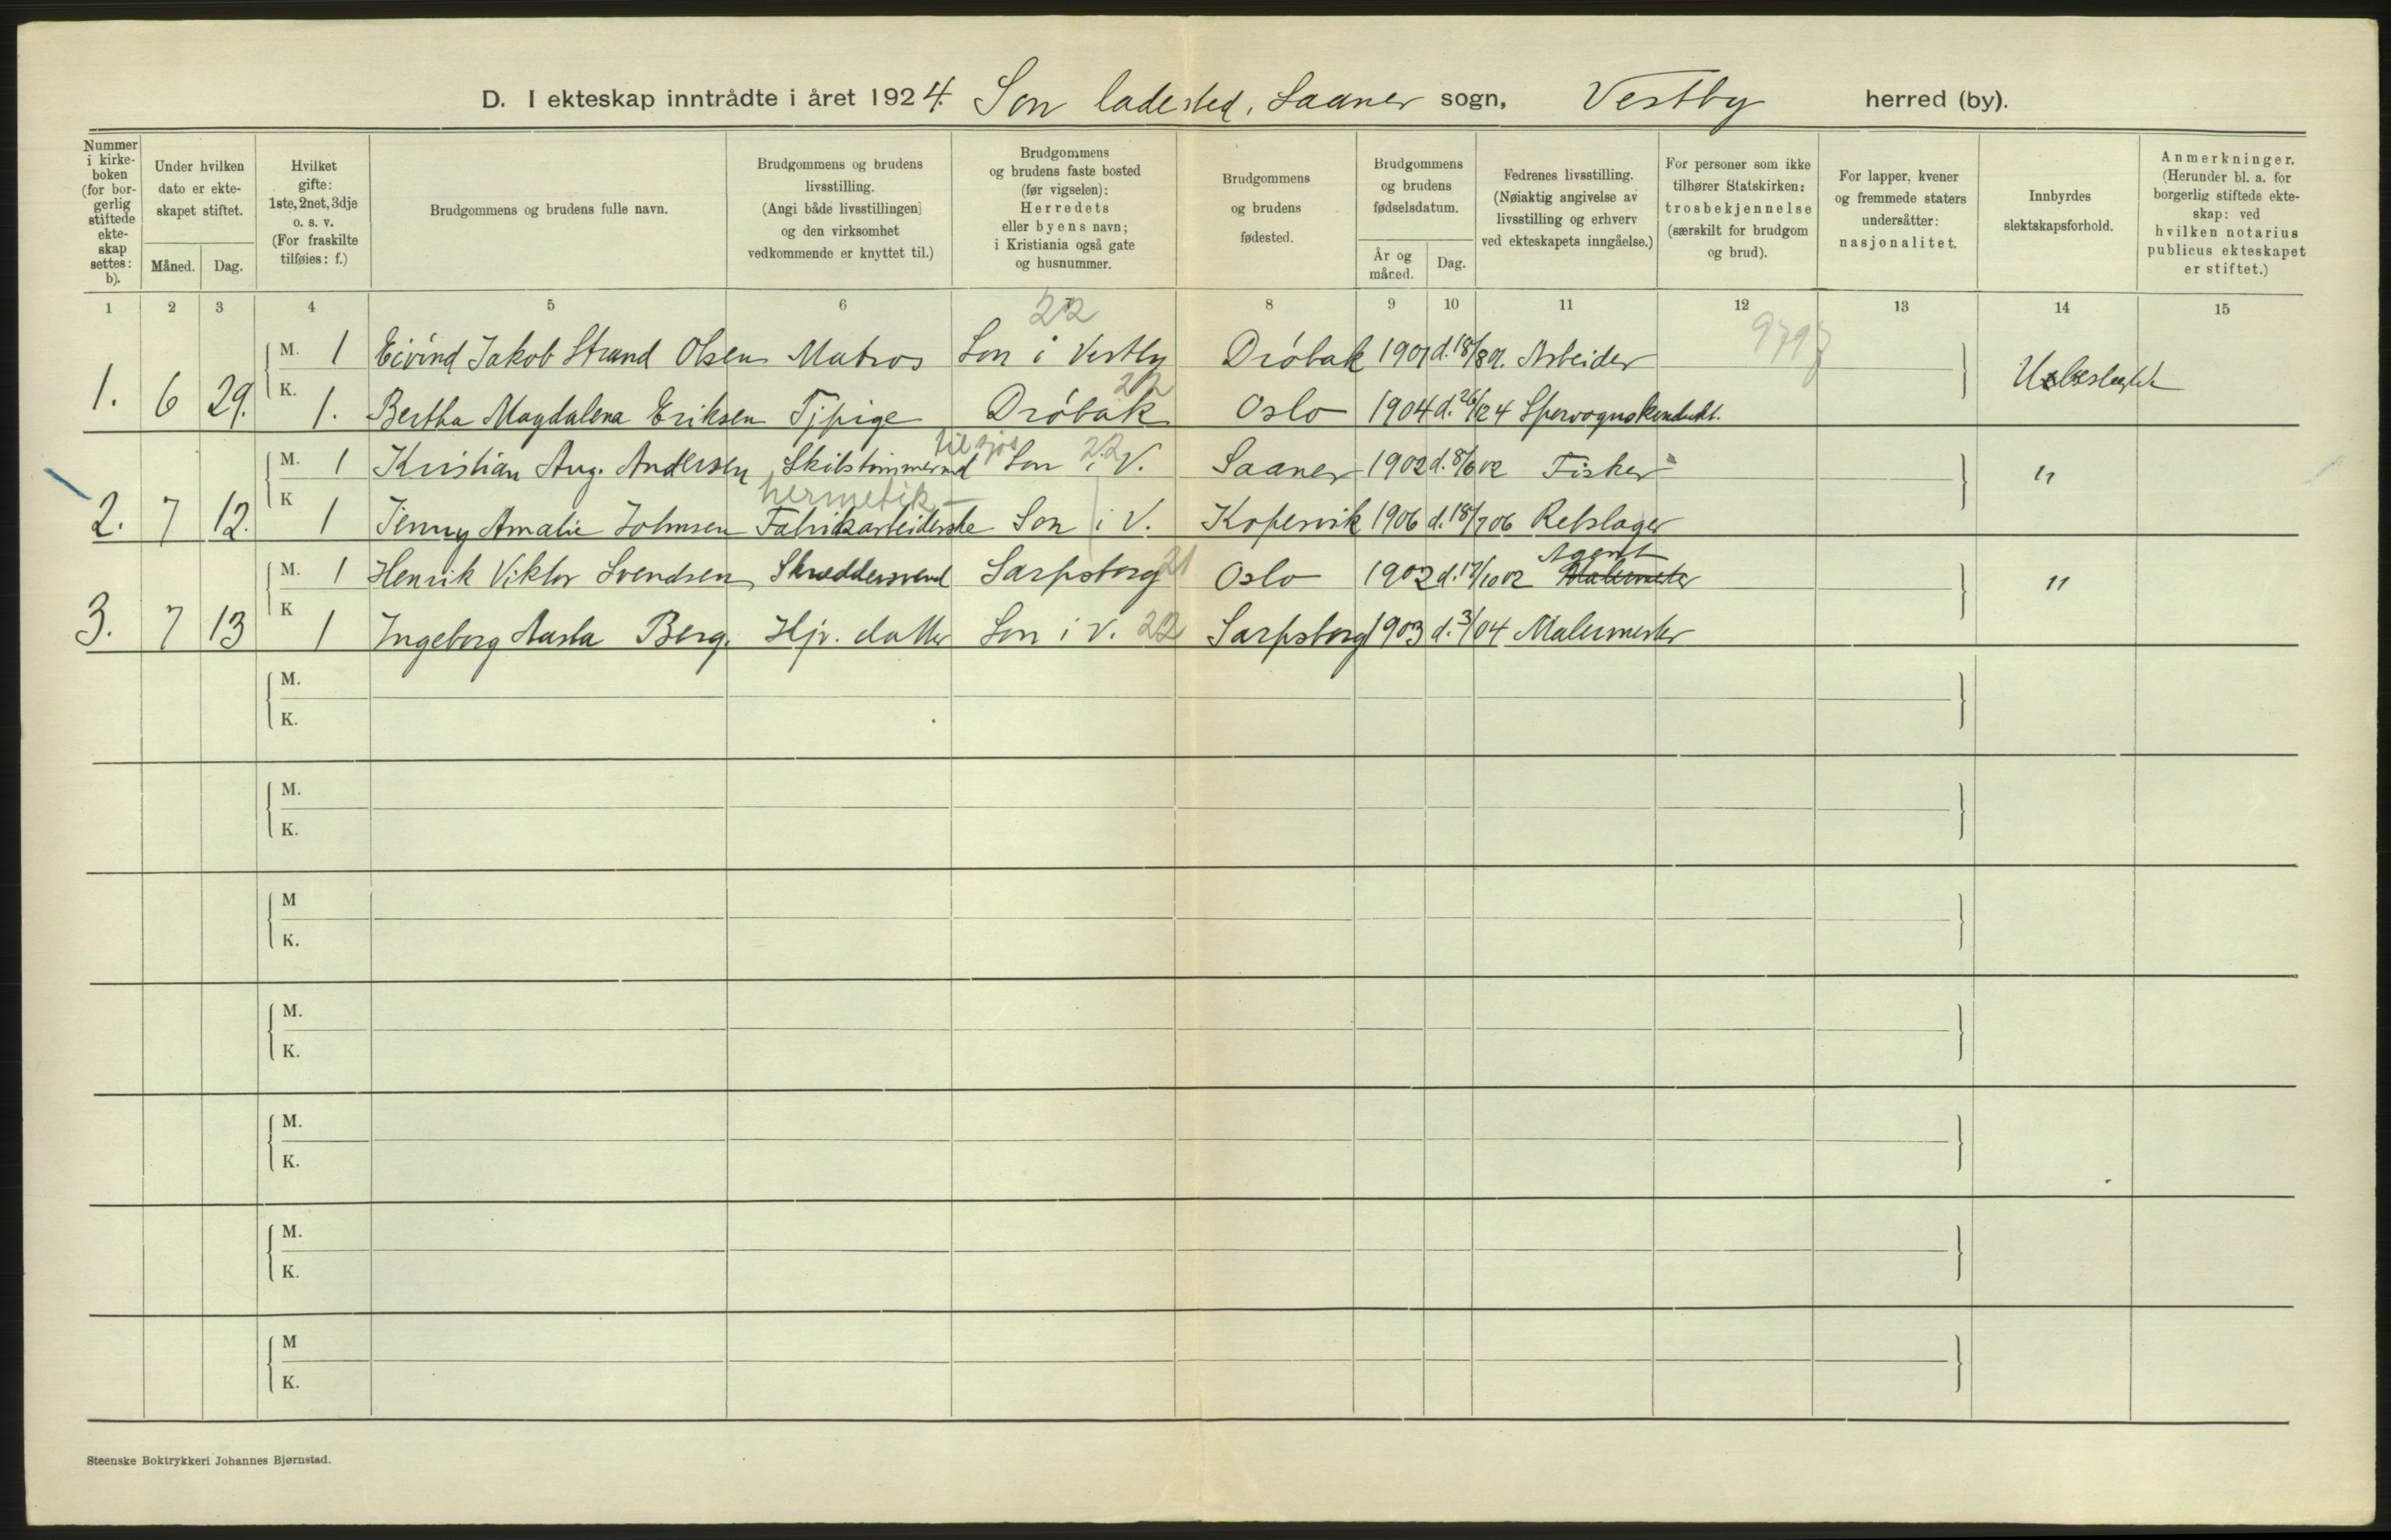 D. I ekteskap inntrådte i året 1924. Son ladested, Saaner sogn, Vestby herred (by).
Nummer i kirke-boken (for bor-gerlig stiftede ekte-skap settes: b).
Under hvilken dato er ekte-skapet stiftet.
Måned. Dag.
Hvilket gifte: 1ste, 2net, 3dje o. s. v. (For fraskilte tilføies: f.)
Brudgommens og brudens fulle navn.
Brudgommens og brudens livsstilling. (Angi både livsstillingen og den virksomhet vedkommende er knyttet til.)
Brudgommens og brudens faste bosted (før vigselen): Herredets eller byens navn; i Kristiania også gate og husnummer.
Brudgommens og brudens fødested.
Brudgommens og brudens fødselsdatum.
År og måned. Dag.
Fedrenes livsstilling. (Nøiaktig angivelse av livsstilling og erhverv ved ekteskapets inngåelse.)
For personer som ikke tilhører Statskirken: trosbekjennelse (særskilt for brudgom og brud).
For lapper, kvener og fremmede staters undersåtter: nasjonalitet.
Innbyrdes slektskapsforhold.
Anmerkninger. (Herunder bl. a. for borgerlig stiftede ekte-skap: ved hvilken notarius publicus ekteskapet er stiftet.)
1 2 3 4 5 6 8 9 10 11 12 13 14 15
22
M. 1 Eivind Jakob Strand Olsen Matros Son i Vestby Dröbak 1901 d. 18/8 01. Arbeider 9797
1. 6 29. Ubeslegtet
K. 1. Bertha Magdalena Eriksen Tjpige Dröbak 22 Oslo 1904 d. 26/12 4 Sporvognskondukt.
til sjøs
M. 1 Kristian Aug. Andersen Skibstimmermd Son i V. 22 Saaner 1902 d. 8/6 02 Fisker "
hermetik-
2. 7 12. K 1 Jenny Amalie Johnsen Fabrikarbeiderske Son i V. Kopervik 1906 d. 18/7 06 Rebslager
Agent
M. 1 Henrik Viktor Svendsen Skreddersvend Sarpsborg 21 Oslo 1902 d. 17/10 02 Malermester "
3. 7 13 K 1 Ingeborg Aasta Berg. Hjv. datter Son i V. 22 Sarpsborg 1903 d. 3/ 04 Malermester
M.
K.
M.
K.
M
K.
M.
K.
M.
K.
M.
K.
M
K.
Steenske Boktrykkeri Johannes Bjørnstad.